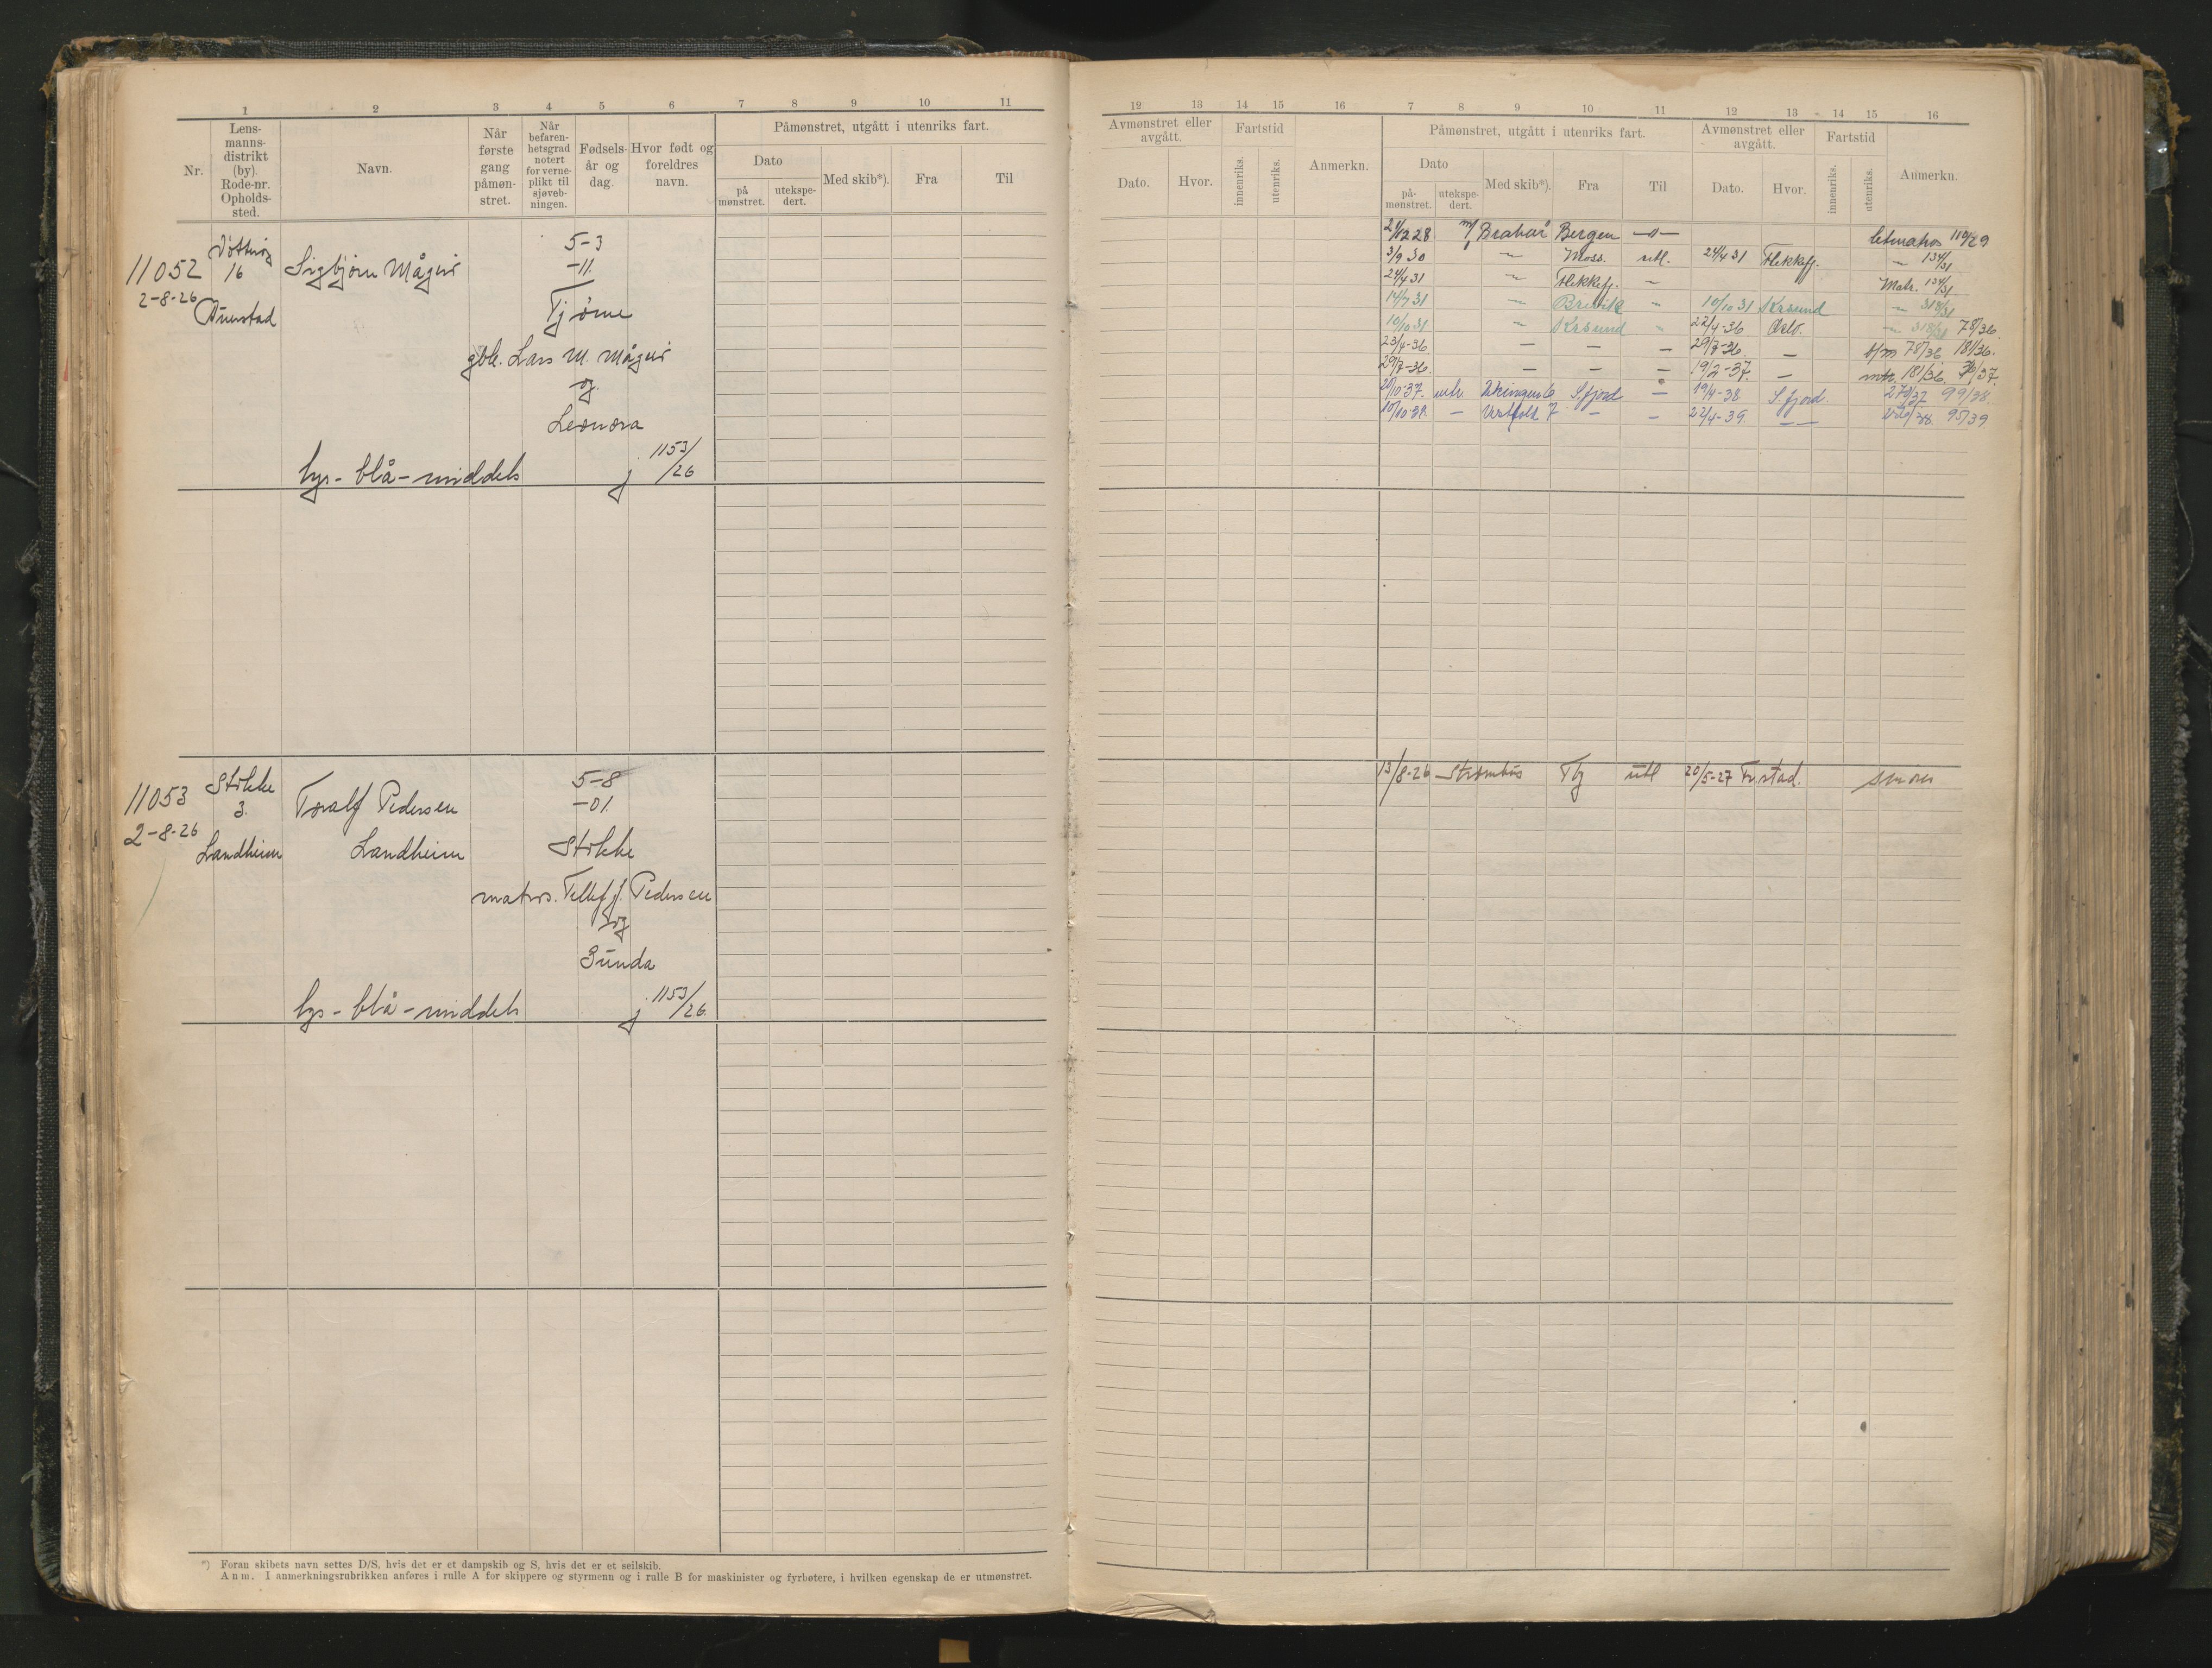 1 2 3 4 5 6 7 8 9 10 11
Nr.
Lens-
manns-
distrikt
(by).
Rode-nr.
Opholds-
sted.
Navn.
Når
første
gang
påmøn-
stret.
Når
befaren-
hetsgrad
notert
for verne-
plikt til
sjøveb-
ningen.
Fødsels-
år og
dag.
Hvor født og
foreldres
navn.
Påmønstret, utgått i utenriks fart.
Dato
på
mønstret.
utekspe-
dert.
Med skib*).
Fra
Til
11052
2-8-26
16
Sigbjørn
5-3
-11.
Tjøme
gbb. Lars M.
og
Leonora
lys - blå - middels
j. 1153/26
11053
2-8-26
Stokke
3.
Landheim
Toralf Pedersen
Landheim
5-8
-01.
Stokke
matros. Tellef J. Pedersen
og
Gunda
lys - blå - middels
j. 1153/26.
*) Foran skibets navn settes D/S, hvis det er et dampskib og S, hvis det er et seilskib.
Anm. I anmerkningsrubrikken anføres i rulle A for skippere og styrmenn og i rulle B for maskinister og fyrbøtere, i hvilken egenskap de er utmønstret.
12 13 14 15 16 7 8 9 10 11 12 13 14 15 16
Avmønstret eller
avgått.
Dato.
Hvor.
Fartstid
innenriks.
utenriks.
Anmerkn.
Påmønstret, utgått i utenriks fart.
Dato
på-
mønstret.
utekspe-
dert.
Med skib*).
Fra
Til
Avmønstret eller
avgått.
Dato.
Hvor.
Fartstid
innenriks.
utenriks.
Anmerkn.
Bergen —"—
3/9 30 — Moss. utl. 24/4 31 Flekkefj. — 134/31
24/4 31 — Flekkefj. — Matr. 134/31
14/7 31 — Brevik — 10/10 31 Krsund — 318/31
10/10 31 — Krsund — 22/4-36 Oslo. — 318/31 78/36
23/4-36. — — — 29/7-36. — 78/36 181/36.
29/7-36. — — — 19/2-37. — 181/36.
S.fjord — 19/4-38 S.fjord. 99/38.
— Vestfold 7 — — 22/4-39. — 95/39
13/8-26 Strombus Tbg utl 20/5-27 Fr.stad. smører